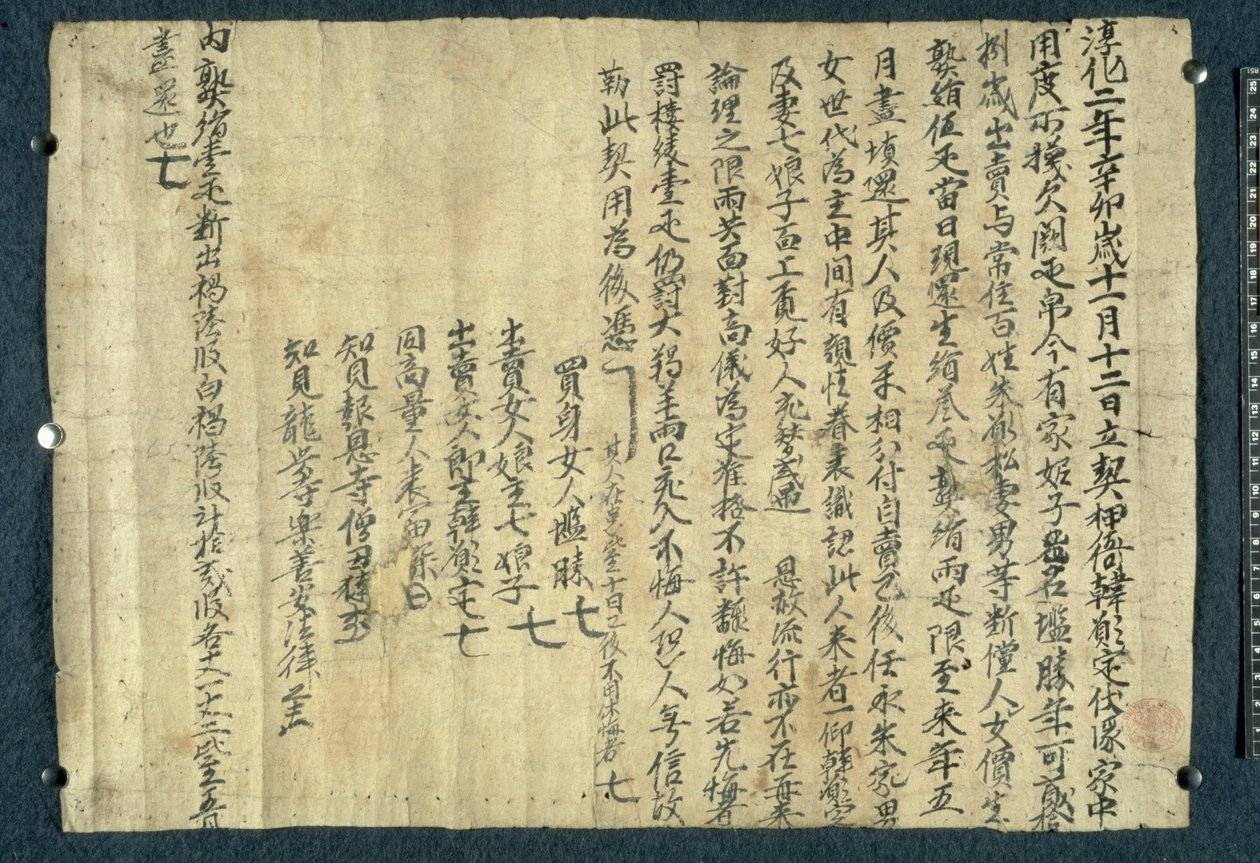 淳化二年辛卯歲十一月十二日立契押衙韓願定伏緣家中
用度不攓欠闕疋帛今有家妮子名𡒄勝年可貳拾
捌歲出賣与常住百姓朱願松妻男等斷償人女價生
熟絹伍疋當日現還生絹叁疋熟絹兩疋限至來年五
月盡填還其人及價互相分付自賣已後任永朱家男
女世代為主中間有親情眷表識認此人來者一仰韓願定
及妻七娘子面上覓好人充替或遇 恩赦流行亦不在再來
論理之限兩共面對商儀為定准格不許翻悔如若先悔者
罰樓綾壹疋仍罰大羯羊兩口充入不悔人恐人無信故
勒此契用為後憑 其人在患比至十日已後不用休悔者 七
買身女人𡒄勝 七
出賣女人娘主七娘子 七
出賣女人郎主韓願定 七
同商量人袁富深
知見報恩寺僧丑撻
知見龍興寺樂善安法律
內熟絹壹疋斷出褐陸段白褐陸段計拾貳段各丈一丈二比至五月
盡還也 七